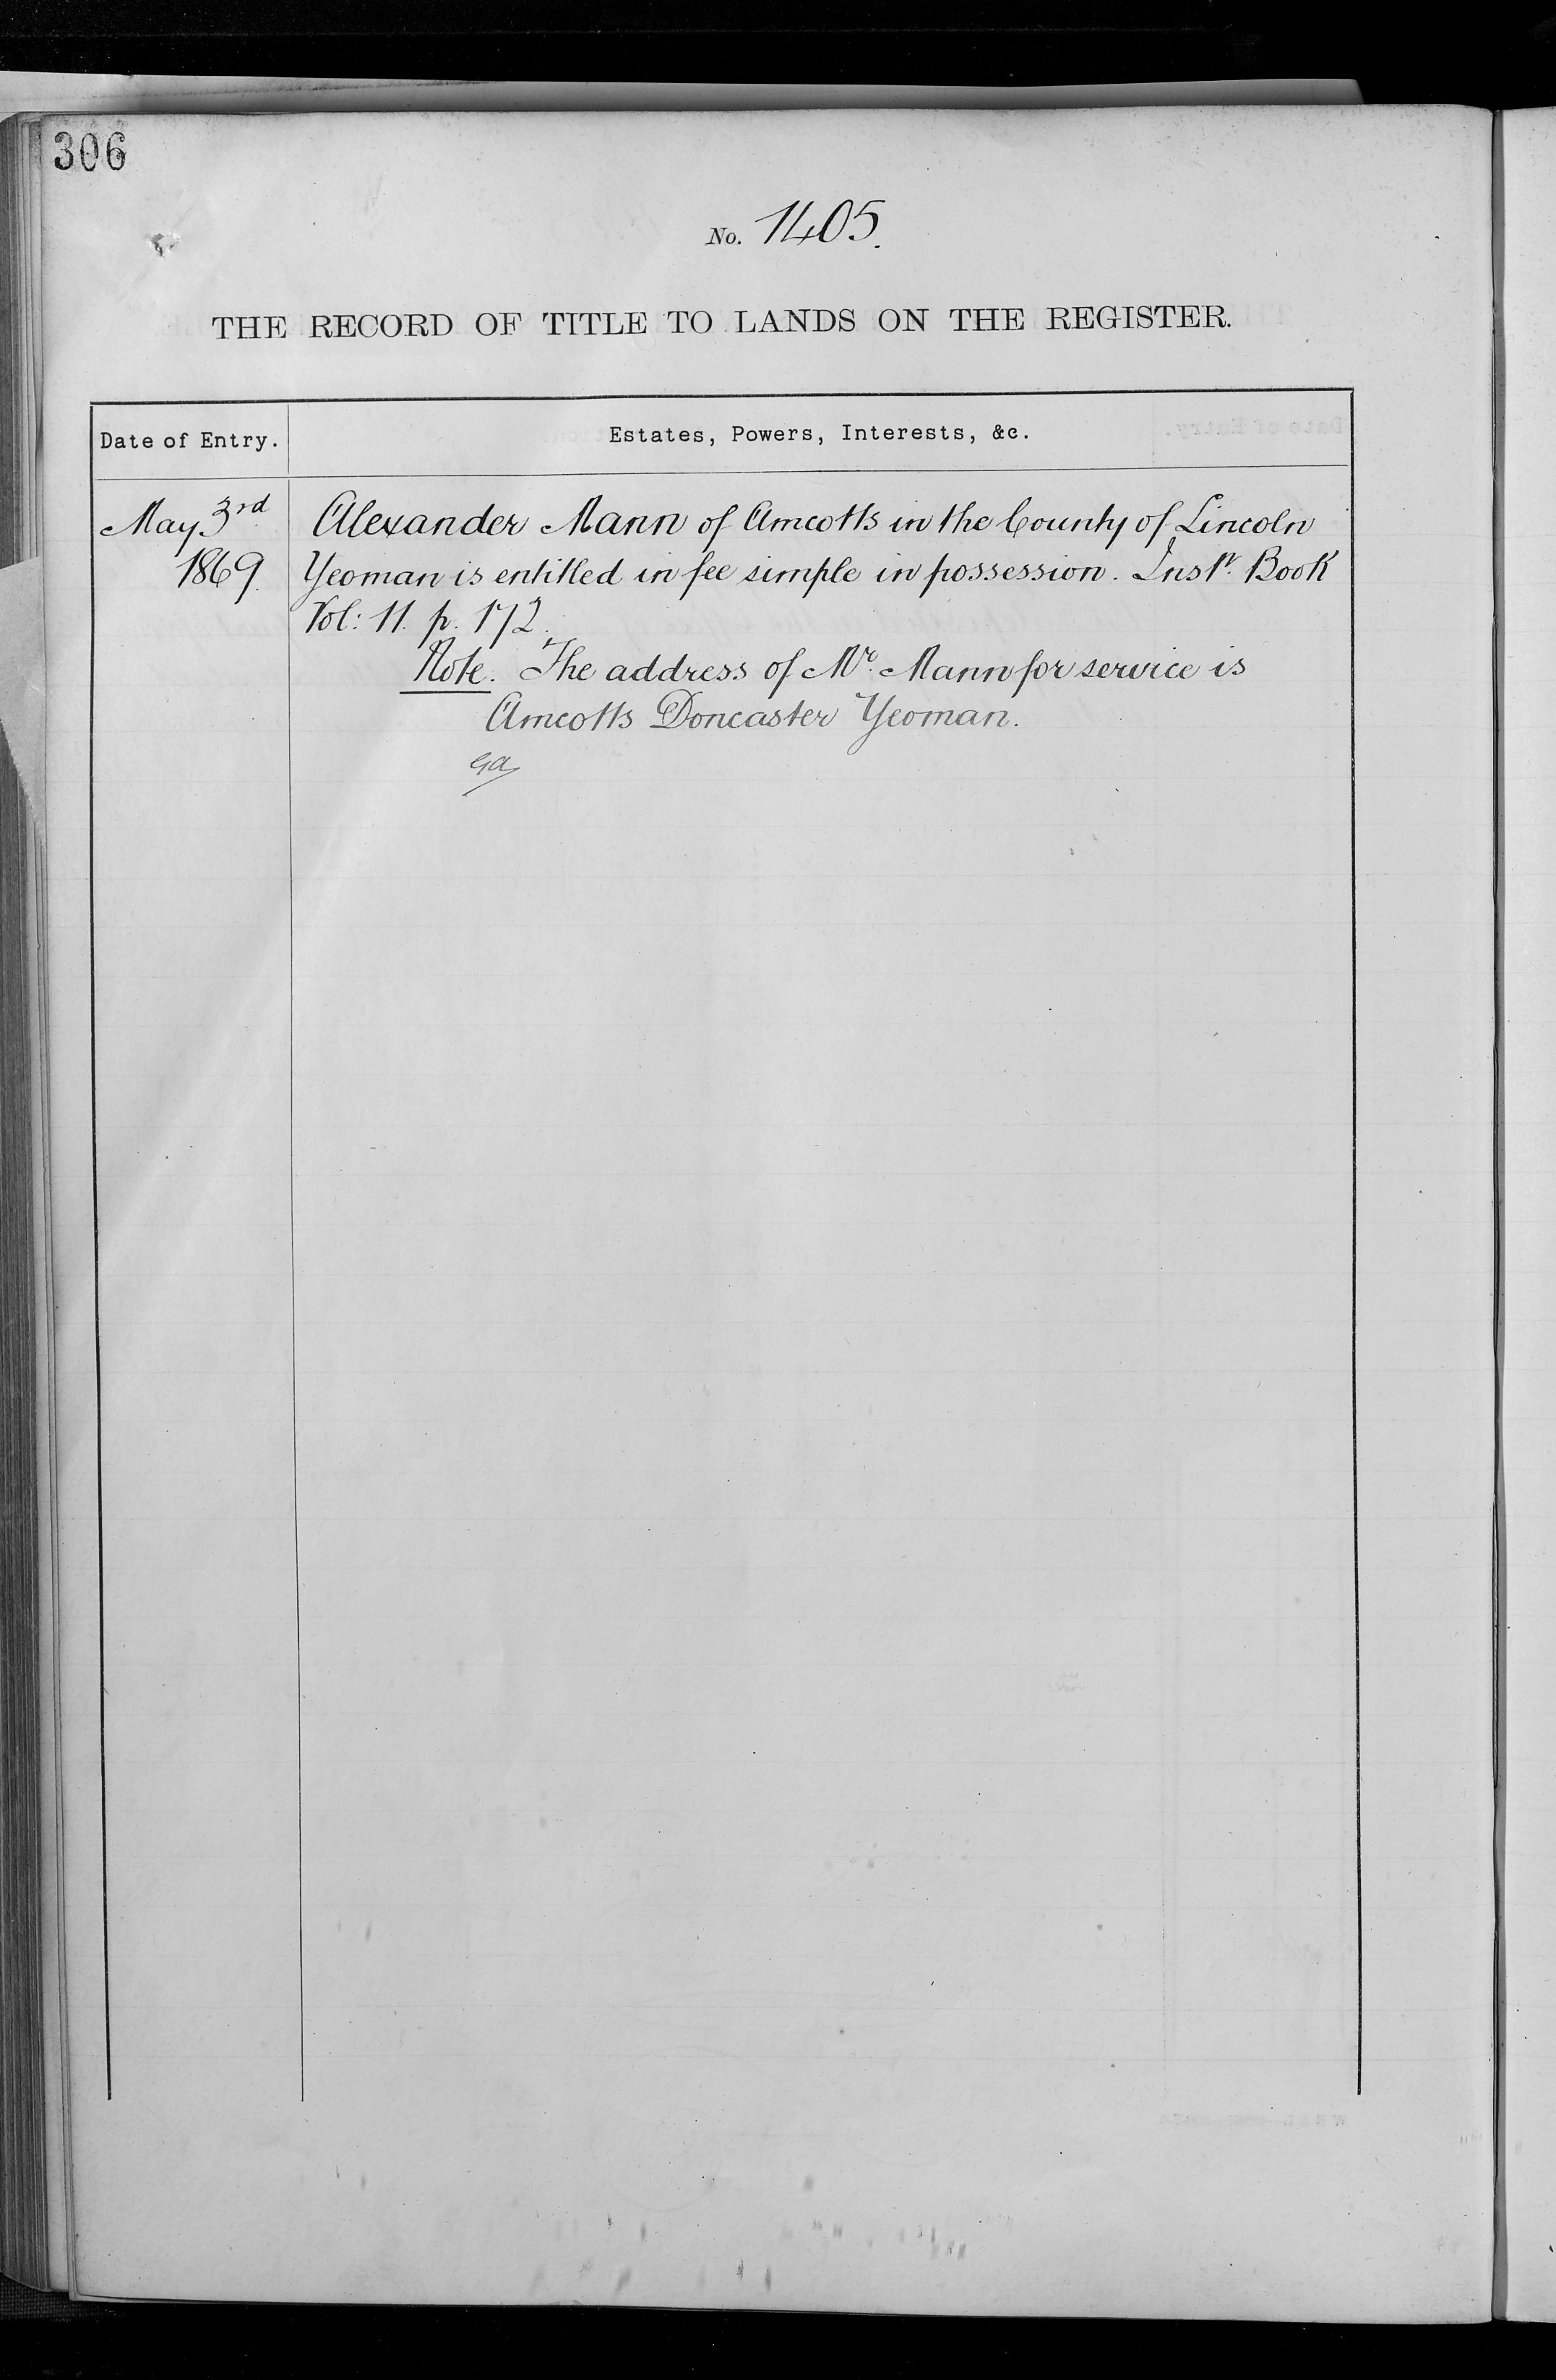 306
No. 1405.
THE RECORD OF TITLE TO LANDS ON THE REGISTER.
Date of Entry.
Estates, Powers, Interests, &c.
May 3rd
1869.
Alexander Mann of Amcotts in the County of Lincoln
Yeoman is entitled in fee simple in possession. Instt. Book
Vol: 11. p. 172.
Note. The address of Mr. Mann for service is
Amcotts Doncaster Yeoman.